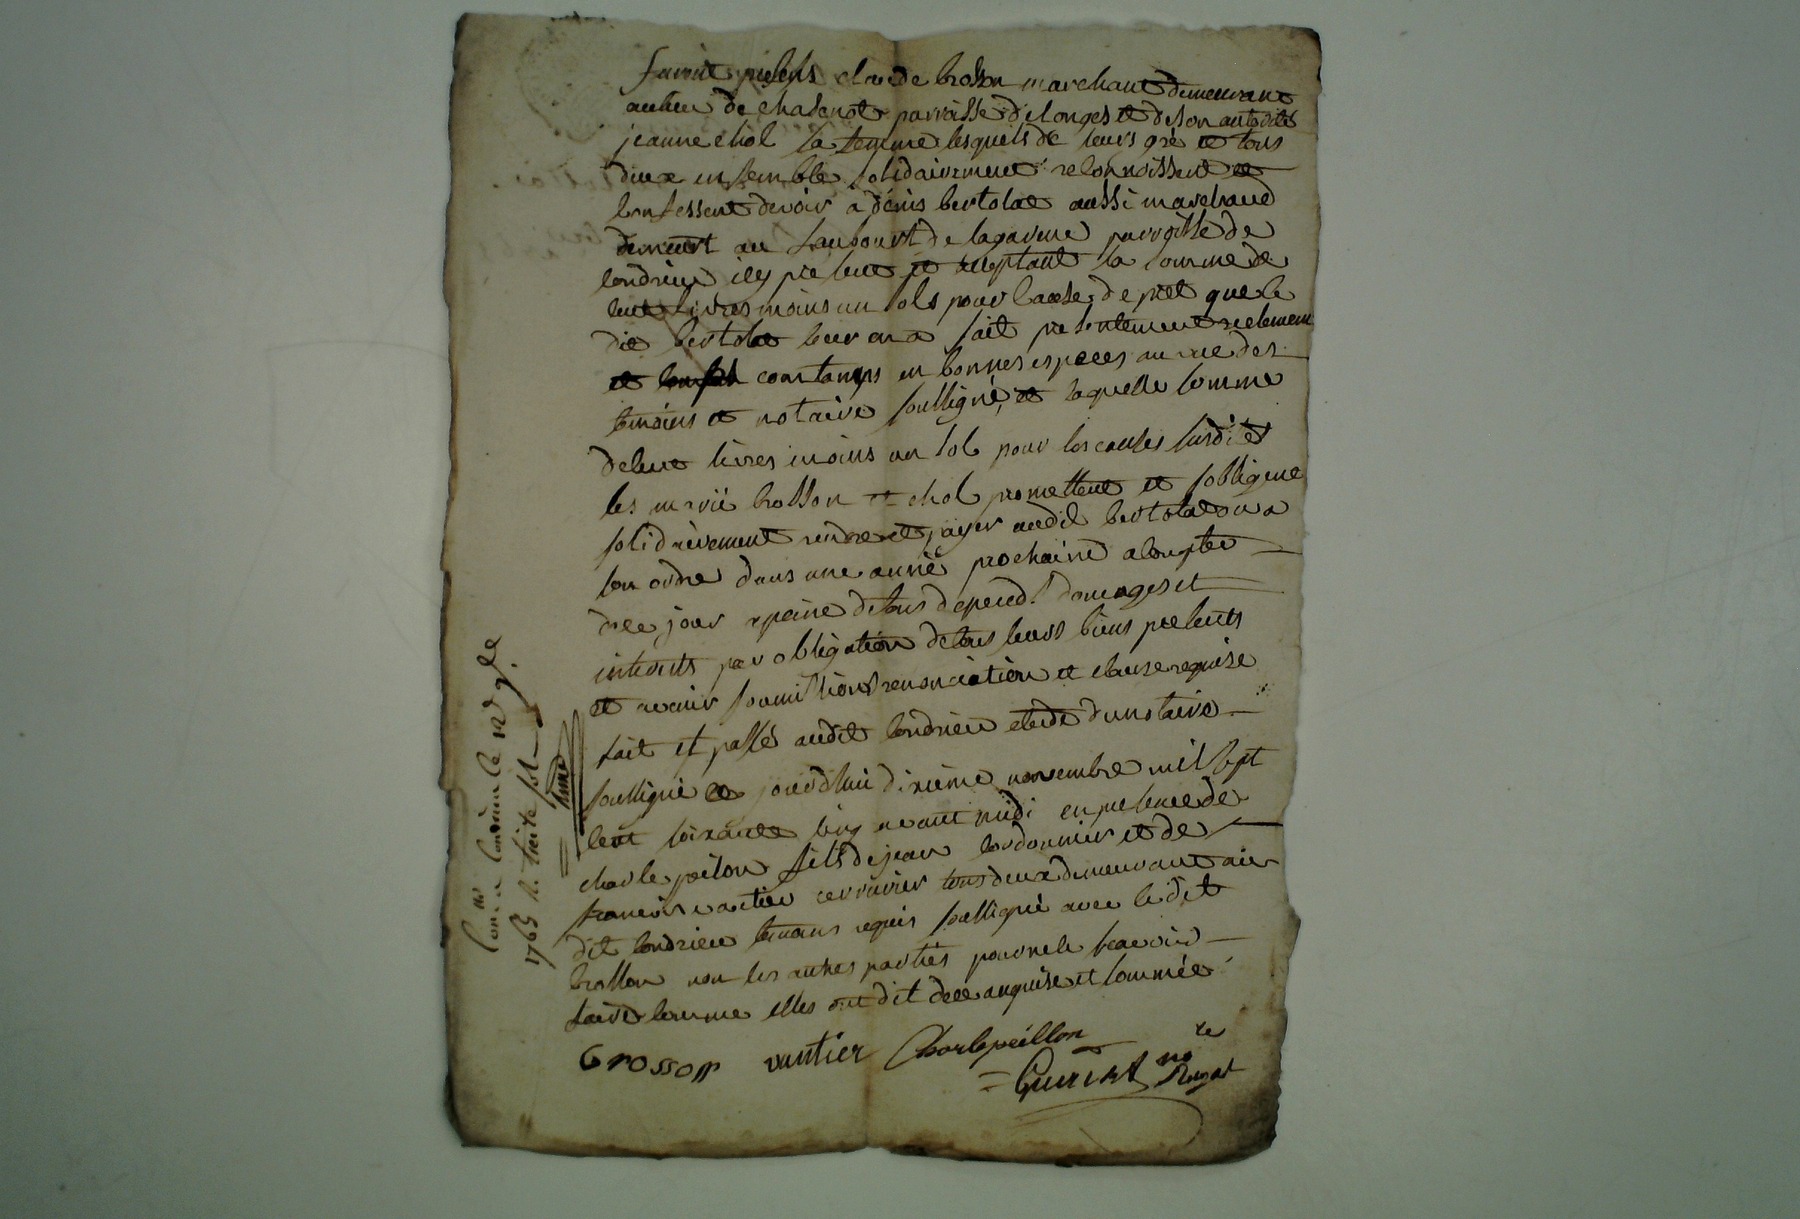 furent presents claude brosson marchant demeurant
au lieu de chasenot parroisse de longes et de son autorité
jeanne chol sa femme lesquels de leurs gré et tous
deux ensemble solidairement reconnoissent et
confessent devoir a denis bertolat aussi marchand
demeurt au faubourt de la parroisse de
condrieu icy present et acceptant la somme de
cent livres moins un sols pour cause de pret que le
dit bertolat leur en a fait presentement reelement
et comtamps en bonnes especes au veue des
temoins et notaire soussigné, et laquelle somme
de cent livres moins un sol pour les causes susdites
les marié brosson et chol promettent et sobligent
solidairement rendre et payer audit bertolat ou a
son ordre dans une année prochaine a compter
de ce jour a peine de tous depend. domages et
interets par obligation de tous leurs biens presents
et avenir soumissions renonciation et clause requise
fait et passés audit condrieu etude du notaire
soussigné ce jourdhui dixieme novembre mil sept
cent soixante cinq avant midi en presence de
charle peilon fils de jean cordonnier et de
francois vautier cerrurier tous deux demeurant au
dit condrieu temoins requis soussigné avec le dit
brosson non les autres parties pour ne le scavoir
faire comme elles ont dit de ce enquise et sommée
Brosson vautier Charle peillon
no re Royal
a Condrieu le 12 9bre
1765 R. treize sol